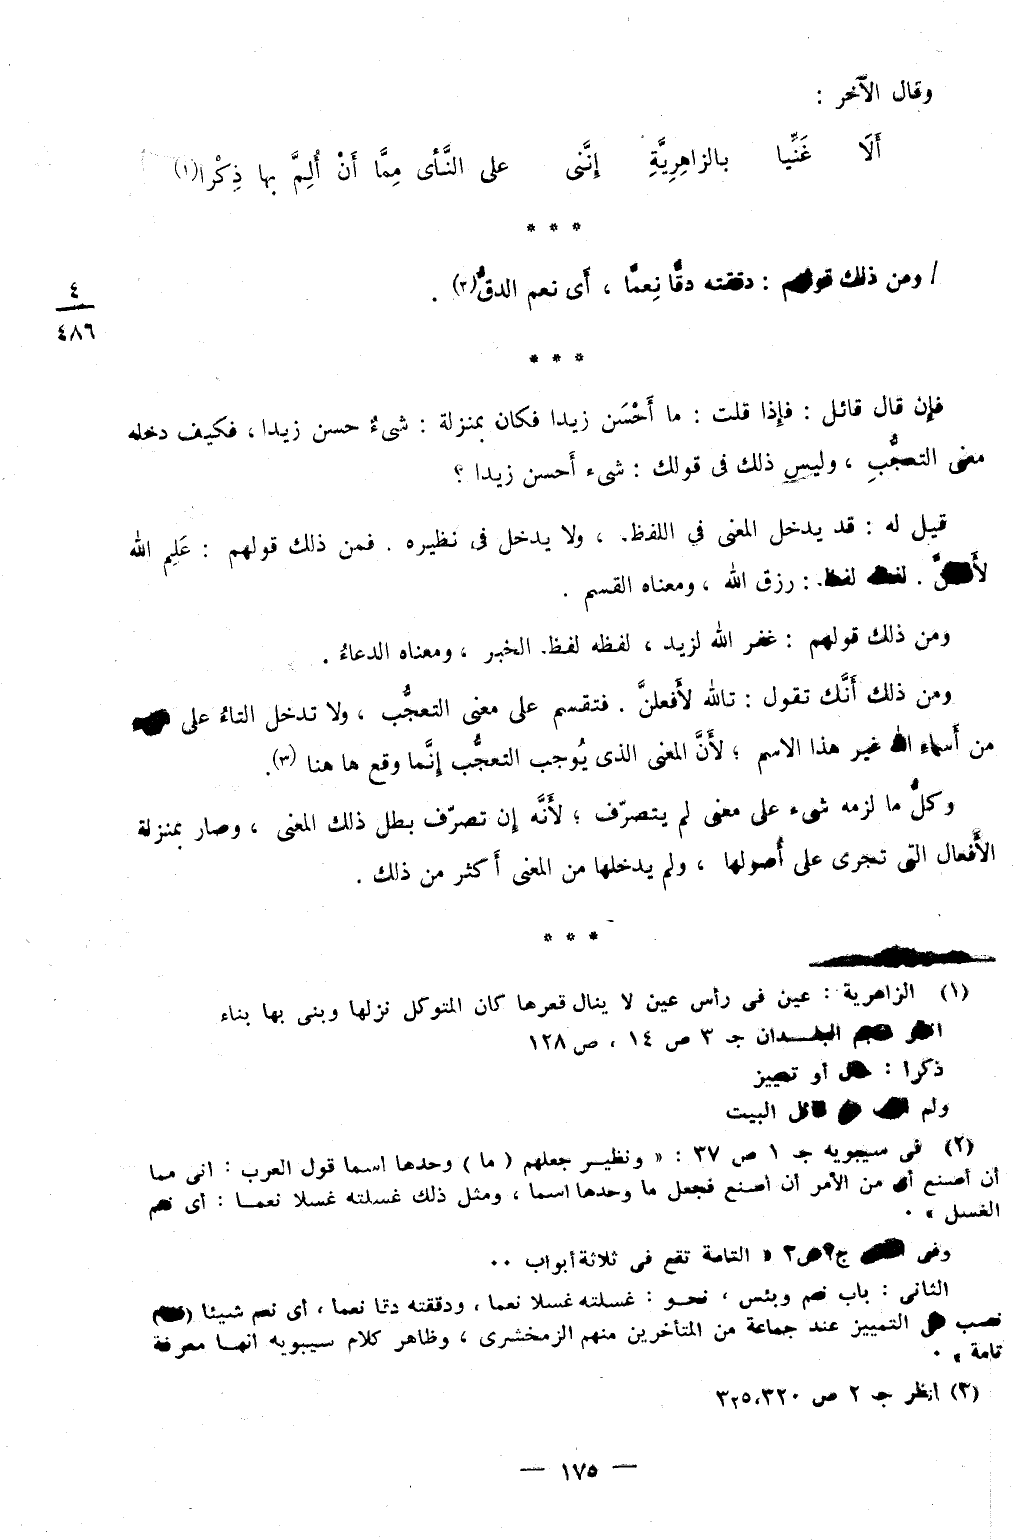 وقال الآخر :
أَلَا غَنِّيا بالزاهِرِيَّةِ إِنَّنى على النَّأى مِمَّا أَنْ أُلِمَّ بها ذِكْرا(١)
* * *
/ ومن ذلك قولهم : دققته دقًّا نِعمَّا ، أَى نعم الدقُّ(٢) .
٤
٤٨٦
* * *
فإن قال قائل : فإِذا قلت : ما أَحْسَن زيدا فكان بمنزلة : شىءٌ حسن زيدا ، فكيف دخله
معنى التعجُّبِ ، وليس ذلك فى قولك : شىء أَحسن زيدا ؟
قيل له : قد يدخل المعنى في اللفظ. ، ولا يدخل فى نظيره . فمن ذلك قولهم : عَلِم الله
لأَفعلنَّ . لفظه لفظ. : رزق الله ، ومعناه القسم .
ومن ذلك قولهم : غفر الله لزيد ، لفظه لفظ. الخبر ، ومعناه الدعاءُ .
ومن ذلك أَنَّك تقول : تالله لأَفعلنَّ . فتقسم على معنى التعجُّب ، ولا تدخل التاءُ على
من أَسماءِ الله غير هذا الاسم ؛ لأَنَّ المعنى الذى يُوجب التعجُّب إِنَّما وقع ها هنا (٣).
وكلُّ ما لزمه شىء على معنى لم يتصرّف ؛ لأَنَّه إن تصرّف بطل ذلك المعنى ، وصار بمنزلة
الأَفعال التى تجرى على أُصولها ، ولم يدخلها من المعنى أَكثر من ذلك .
* * *
(١) الزاهرية : عين فى رأس عين لا ينال قعرها كان المتوكل نزلها وبنى بها بناء
انظر معجم البلدان جـ ٣ ص ١٤ ، ص ١٢٨
ذكرا : حال أو تمييز
ولم قائل البيت
(٢) فى سيبويه جـ ١ ص ٣٧ : « ونظير جعلهم ( ما ) وحدها اسما قول العرب : انى مما
أن أصنع أى من الأمر أن أصنع فجعل ما وحدها اسما ، ومثل ذلك غسلته غسلا نعما : أى نعم
الغسل » .
وفى ج٢ص٢ « التامة تقع فى ثلاثة أبواب ..
الثانى : باب نعم وبئس ، نحو : غسلته غسلا نعما ، ودققته دقا نعما ، أى نعم شيئا
نصب على التمييز عند جماعة من المتأخرين منهم الزمخشرى ، وظاهر كلام سيبويه انها معرفة
تامة » .
(٣) انظر جـ ٢ ص ٣٢٠،٣٢٥
— ١٧٥ —